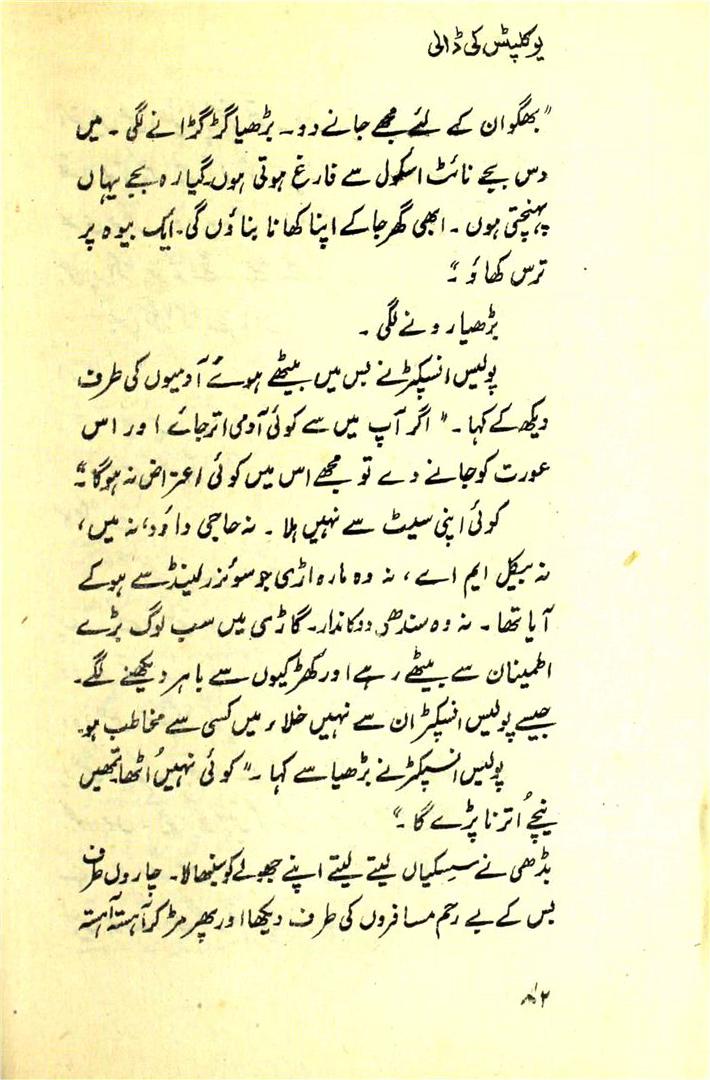 یوکلپٹس کی ڈالی
"بھگوان کے لئے مجھے جانے دو۔ بڑھیا گڑگڑانے لگی۔ میں
دس بجے نائٹ اسکول سے فارغ ہوتی ہوں۔ گیارہ بجے یہاں
پہنچتی ہوں۔ ابھی گھر جا کے اپنا کھانا بناؤں گی۔ ایک بیوہ پر
ترس کھاؤ۔"
بڑھیا رونے لگی۔
پولیس انسپکٹر نے بس میں بیٹھے ہوئے آدمیوں کی طرف
دیکھ کے کہا۔ "اگر آپ میں سے کوئی آدمی اتر جائے اور اس
عورت کو جانے دے تو مجھے اس میں کوئی اعتراض نہ ہوگا۔"
کوئی اپنی سیٹ سے نہیں ہلا۔ نہ حاجی داؤد، نہ میں،
نہ ہیکل ایم اے، نہ وہ مارواڑی جو سوئزرلینڈ سے ہو کے
آیا تھا۔ نہ وہ سندھی دوکاندار۔ گاڑی میں سب لوگ بڑے
اطمینان سے بیٹھے رہے اور کھڑکیوں سے باہر دیکھنے لگے۔
جیسے پولیس انسپکٹر ان سے نہیں خلاء میں کسی سے مخاطب ہو۔
پولیس انسپکٹر نے بڑھیا سے کہا۔ "کوئی نہیں اُٹھا تمھیں
نیچے اُترنا پڑے گا۔"
بڈھی نے سسکیاں لیتے لیتے اپنے جھولے کو سنبھالا۔ چاروں طرف
بس کے بے رحم مسافروں کی طرف دیکھا اور پھر مڑ کر آہستہ آہستہ